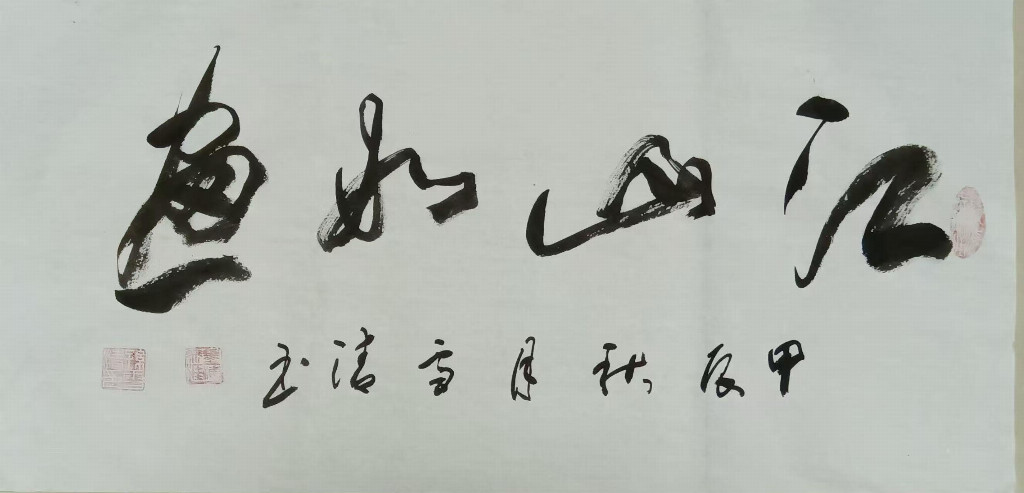 江山如画
甲辰秋月雪清书